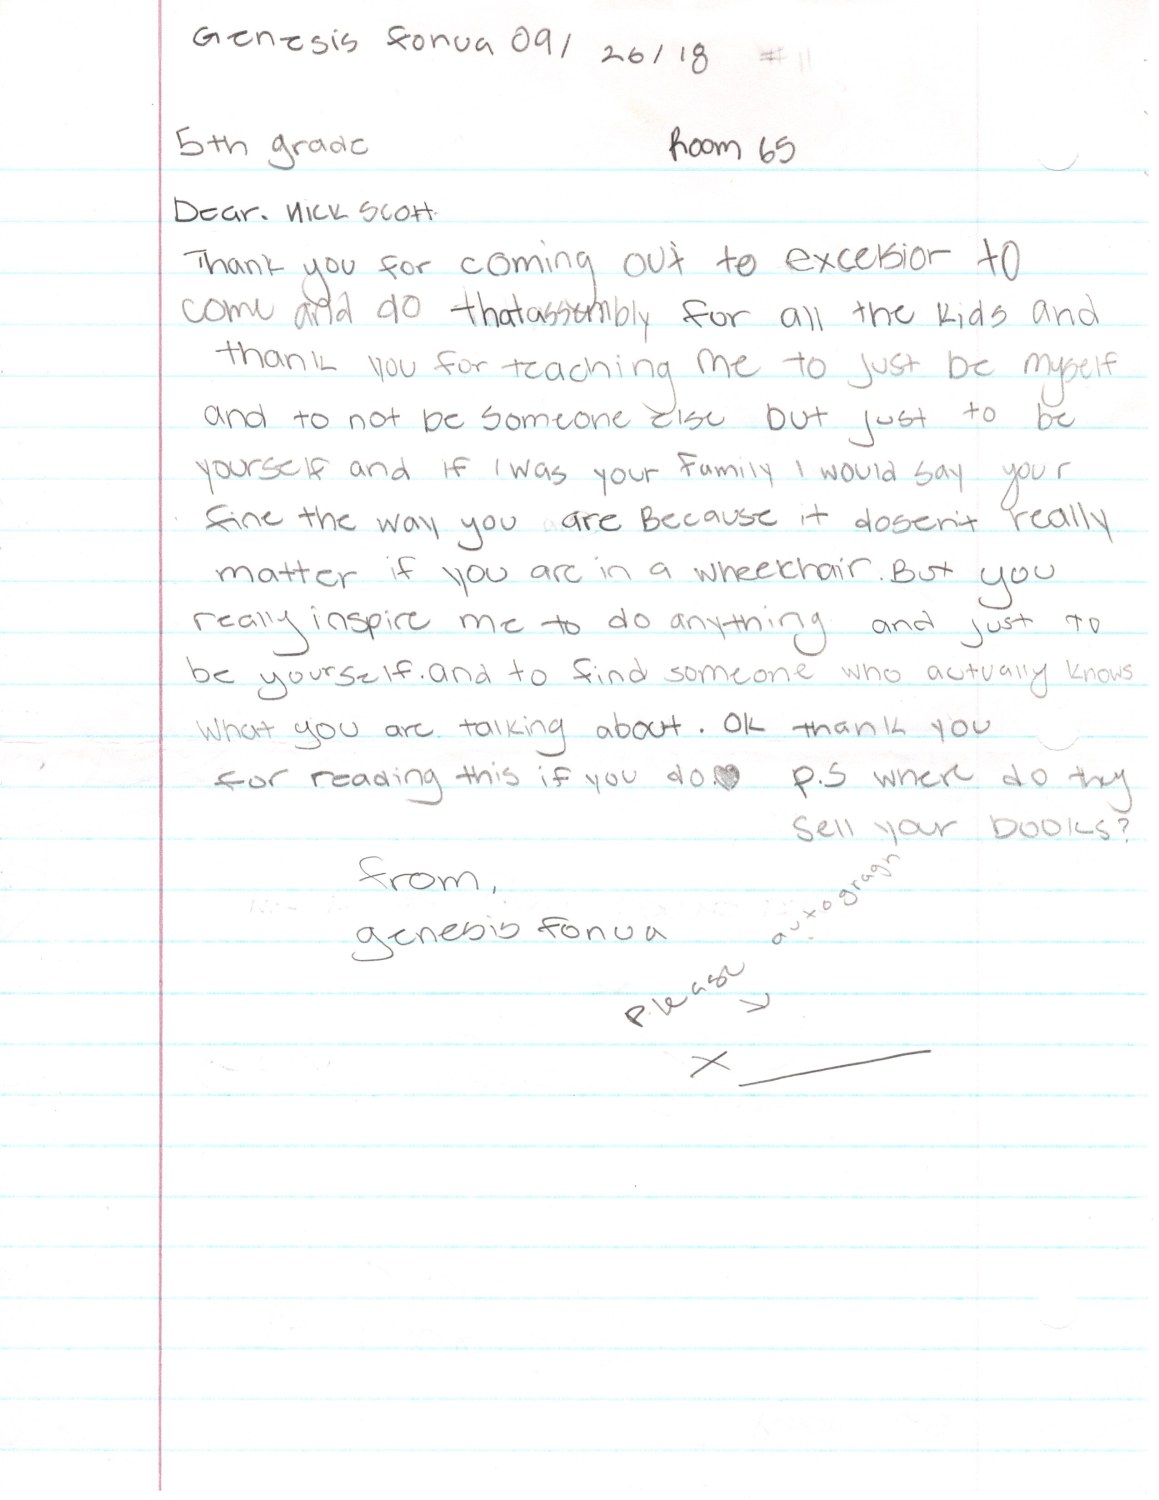 Genesis fonua 09/ 26/18 #11
5th grade Room 65
Dear. Nick Scott
Thank you for coming out to excelsior to
come and do that assembly for all the kids and
thank you for teaching me to just be myself
and to not be someone else but just to be
yourself and if I was your Family I would say your
fine the way you are Because it dosen't really
matter if you are in a wheelchair. But you
really inspire me to do anything and just to
be yourself. and to find someone who actually knows
what you are talking about. Ok thank you
for reading this if you do♥ P.S where do thy
sell your books?
from,
genesis fonua
Please autogragh
X